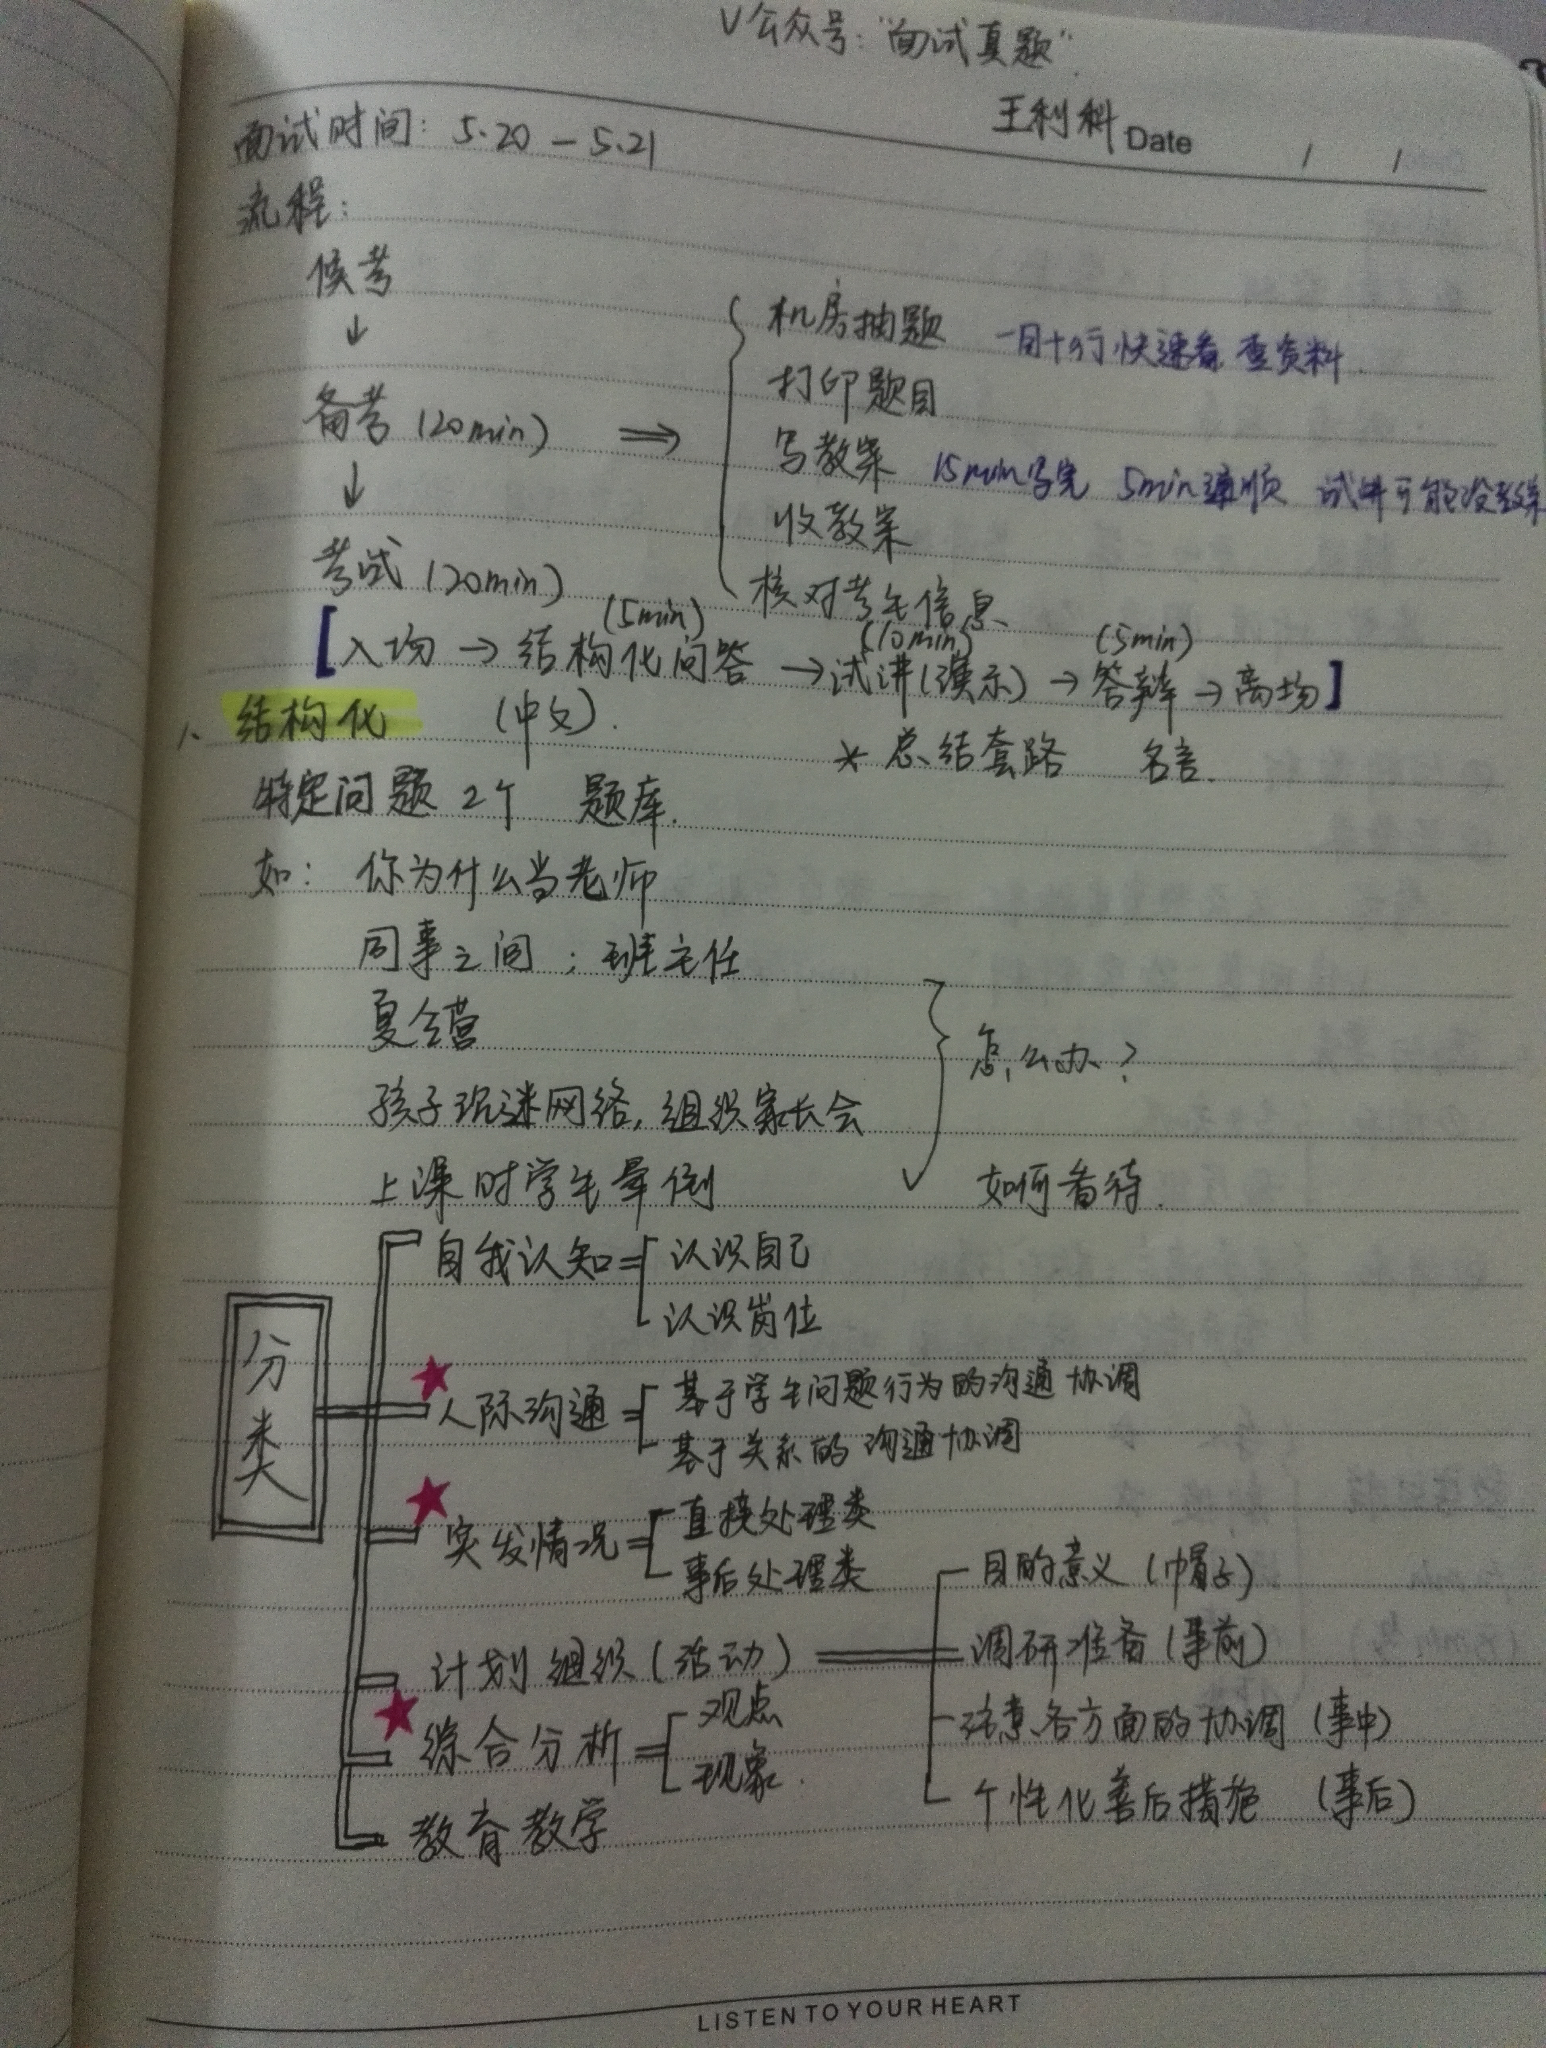 V公众号：“面试真题”
王利科 Date / /
面试时间：5.20 — 5.21
流程：
候考
↓
备考（20min） ⇒
机房抽题 一目十行快速看 查资料
打印题目
写教案 15min写完 5min通顺 试讲可能没教案
收教案
核对考生信息
↓
考试（20min）
(5min) (10min) (5min)
[入场 → 结构化问答 → 试讲(演示) → 答辩 → 离场]
1、结构化 （中文）.
* 总结套路 名言.
特定问题 2个 题库.
如： 你为什么当老师
同事之间 ; 班主任
夏令营
孩子沉迷网络，组织家长会
上课时学生晕倒
怎么办？
如何看待.
分类
自我认知
认识自己
认识岗位
★人际沟通
基于学生问题行为的沟通协调
基于关系的沟通协调
★突发情况
直接处理类
事后处理类
计划组织（活动）
目的意义（帽子）
调研准备（事前）
注意各方面的协调（事中）
个性化善后措施（事后）
★综合分析
观点
现象.
教育教学
LISTEN TO YOUR HEART